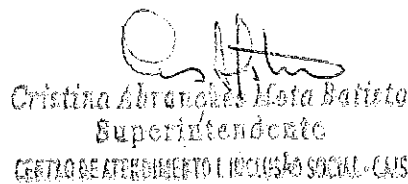 Cristina Abranches Mota Batista
Superintendente
CENTRO DE ATENDIMENTO E INCLUSÃO SOCIAL - CAIS